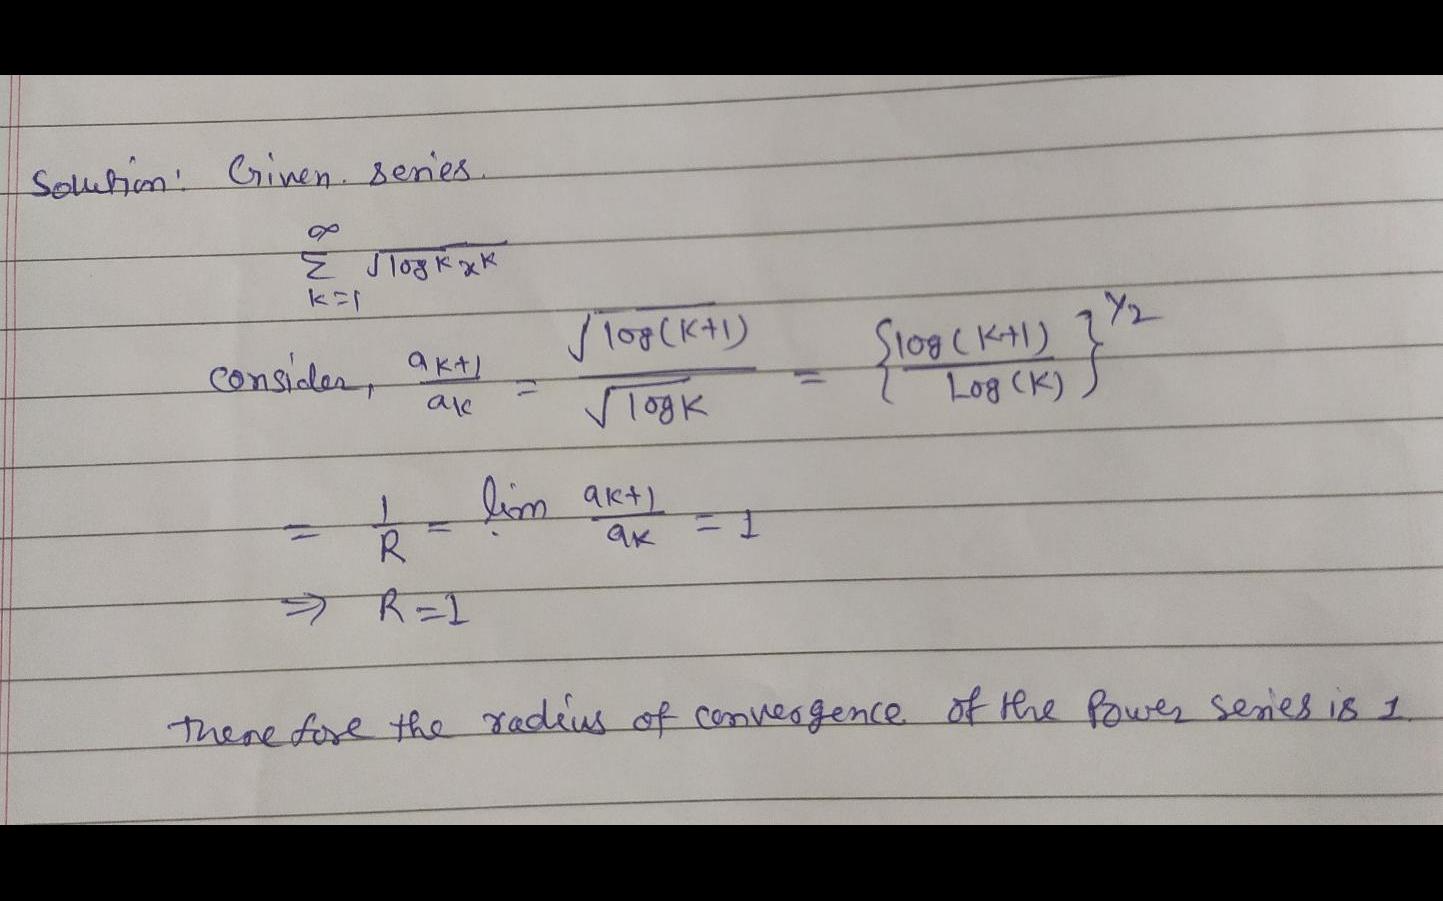 Solution: Given series.
∞
Σ √log k x^k
k=1
consider, a_{k+1}/a_k = √log(k+1)/√log k = {log(k+1)/Log(k)}^{1/2}
= 1/R = lim a_{k+1}/a_k = 1
⇒ R=1
Therefore the radius of convergence of the Power series is 1.